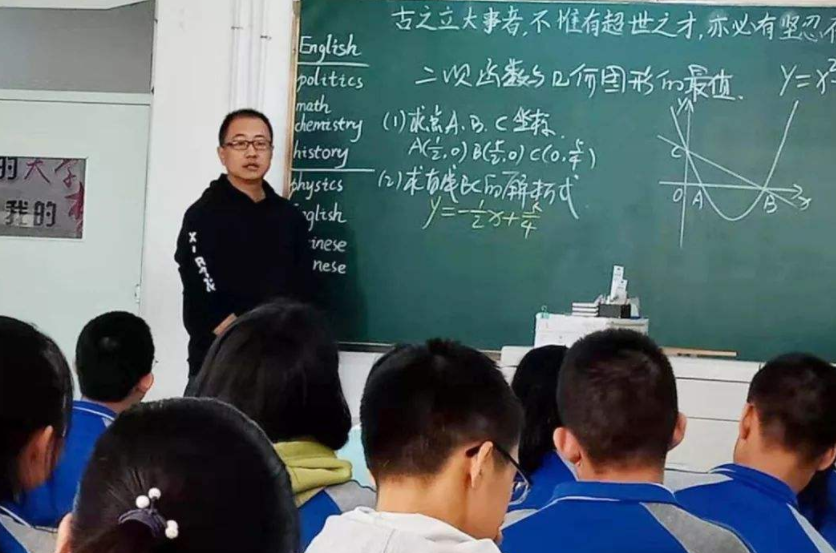 古之立大事者,不惟有超世之才,亦必有坚忍不
二次函数与几何图形的最值.
y=x²
(1)求点A、B、C坐标.
A(½,0) B(5/2,0) C(0,5/4)
(2)求直线BC的解析式
y=-½x+5/4
y
C
O
A
B
x
English
politics
math
chemistry
history
physics
nglish
inese
nese
的大学
我的